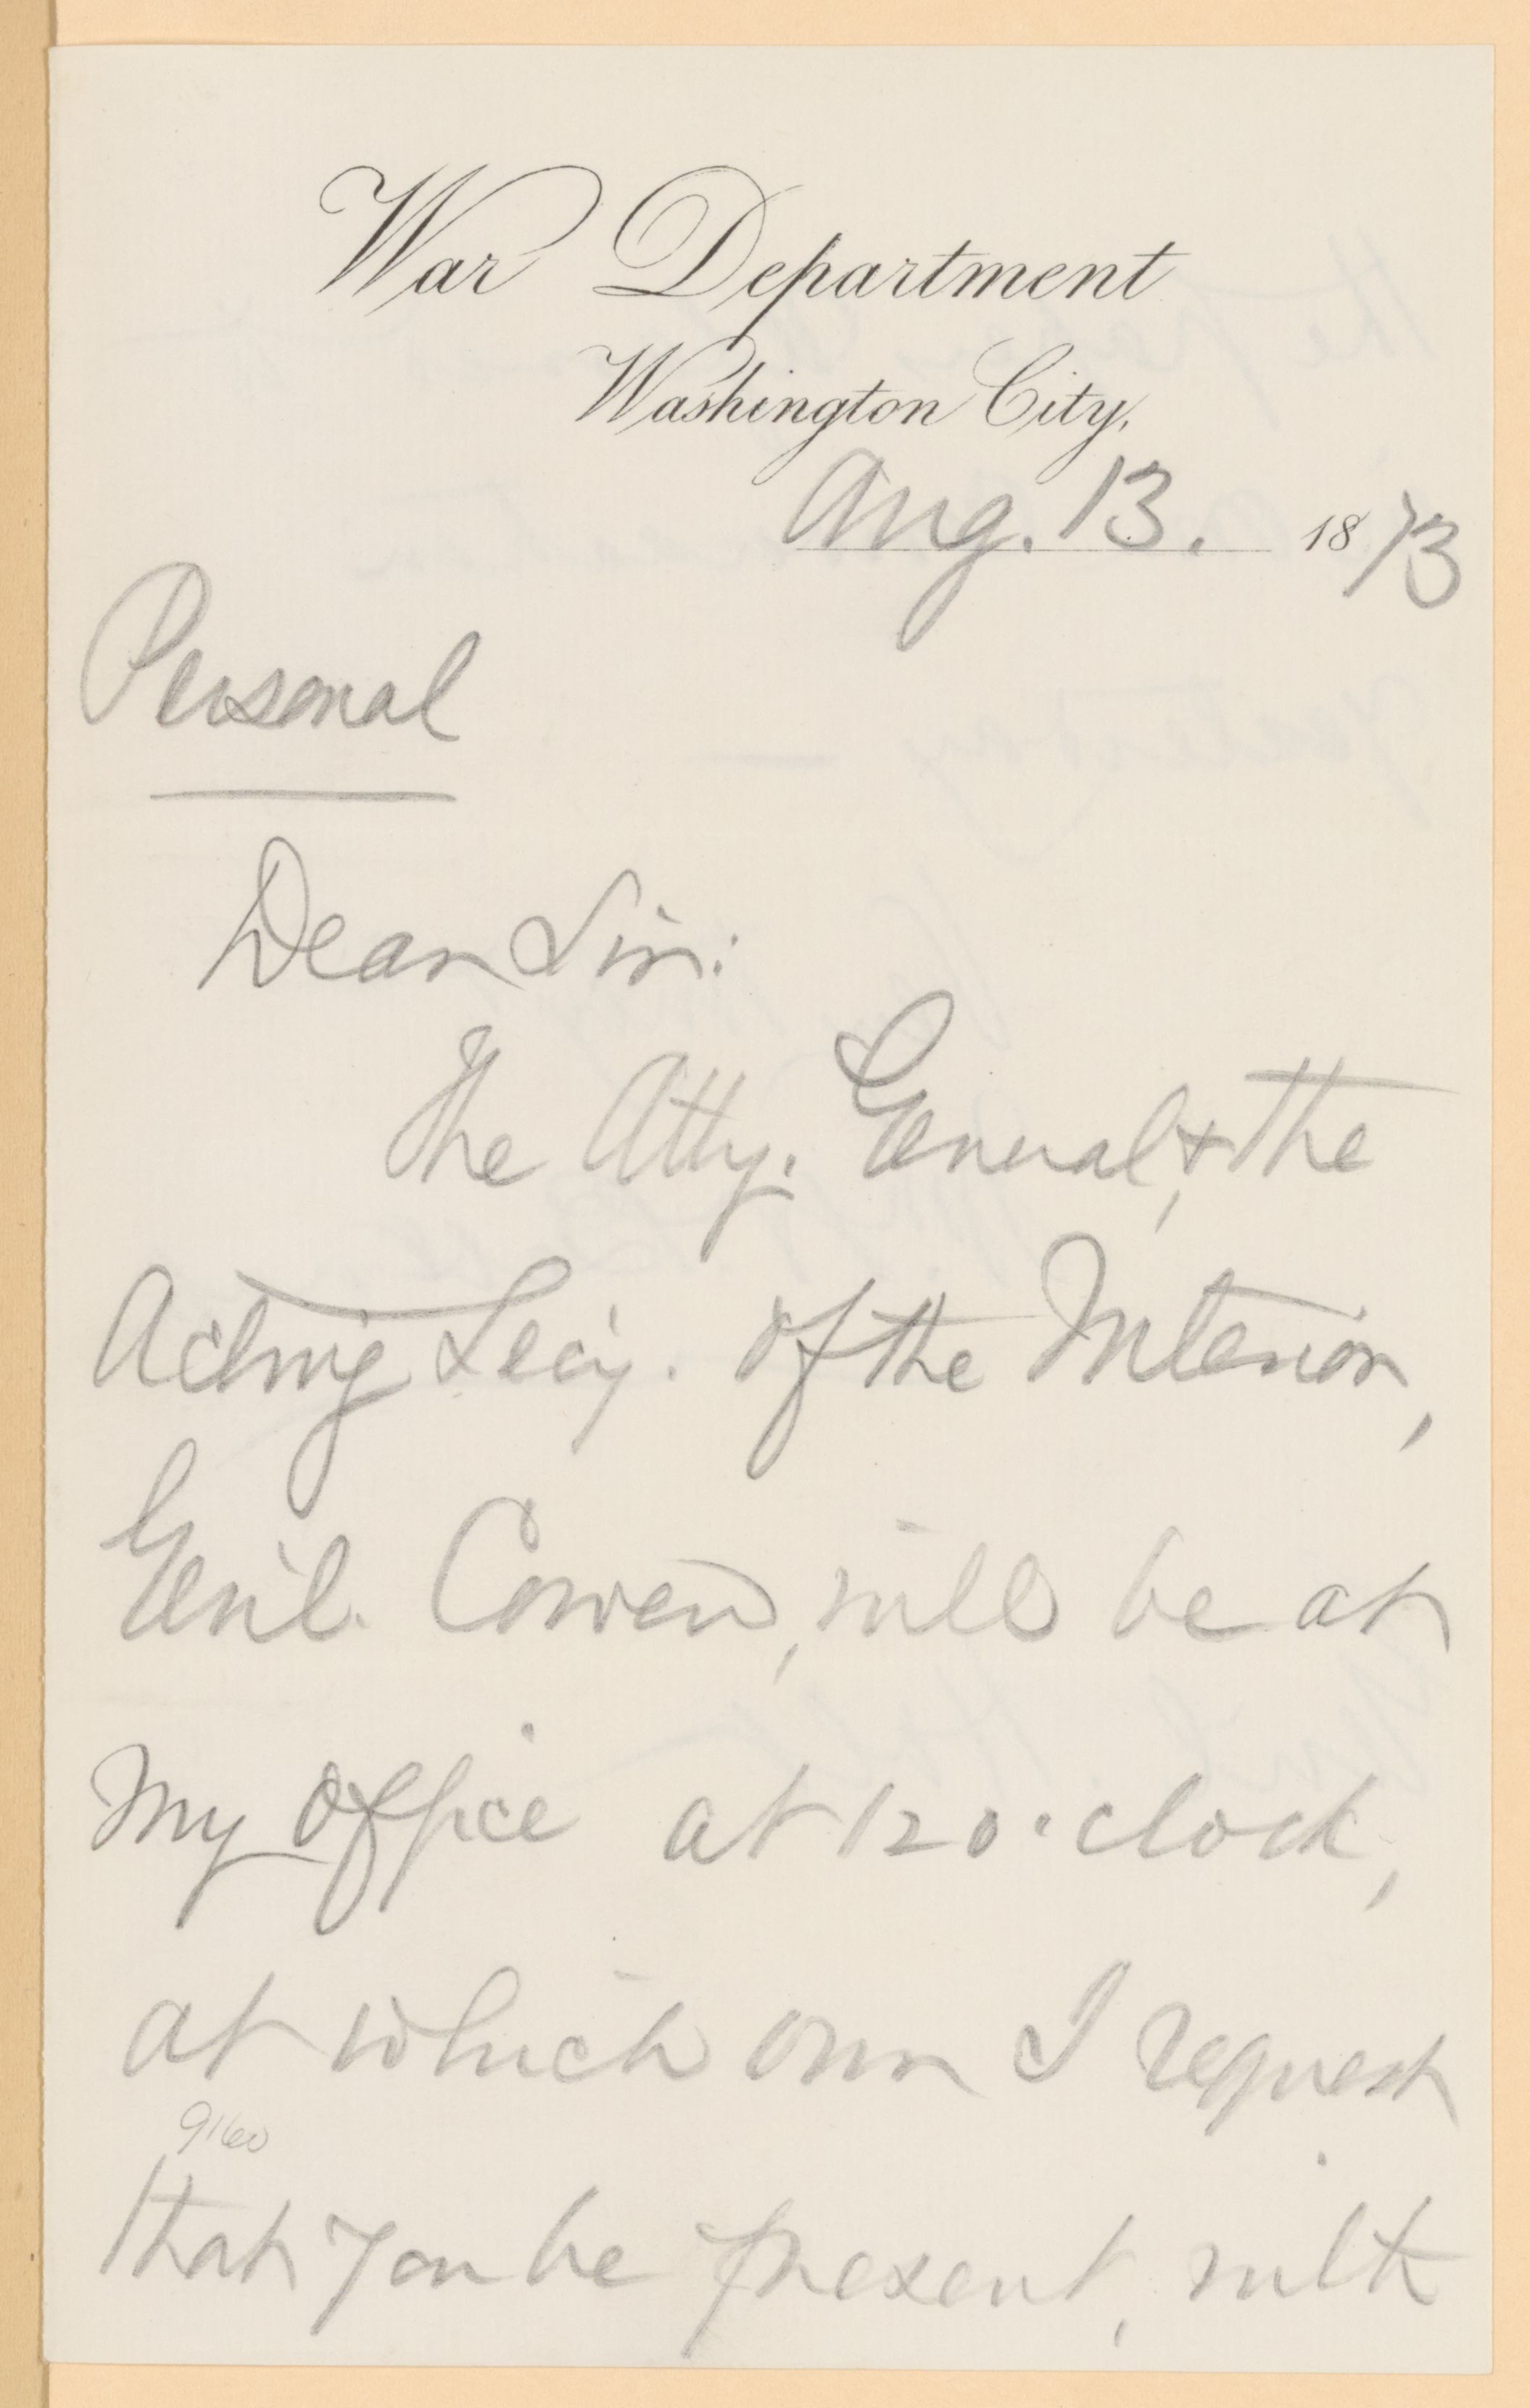 War Department
Washington City,
Aug. 13. 1873
Personal
Dear Sir:
The Atty. General, & the
Acting Secy. of the Interior,
Gen'l. Cowen, will be at
my office at 12 o'clock,
at which hour I request
9160
that you be present, with